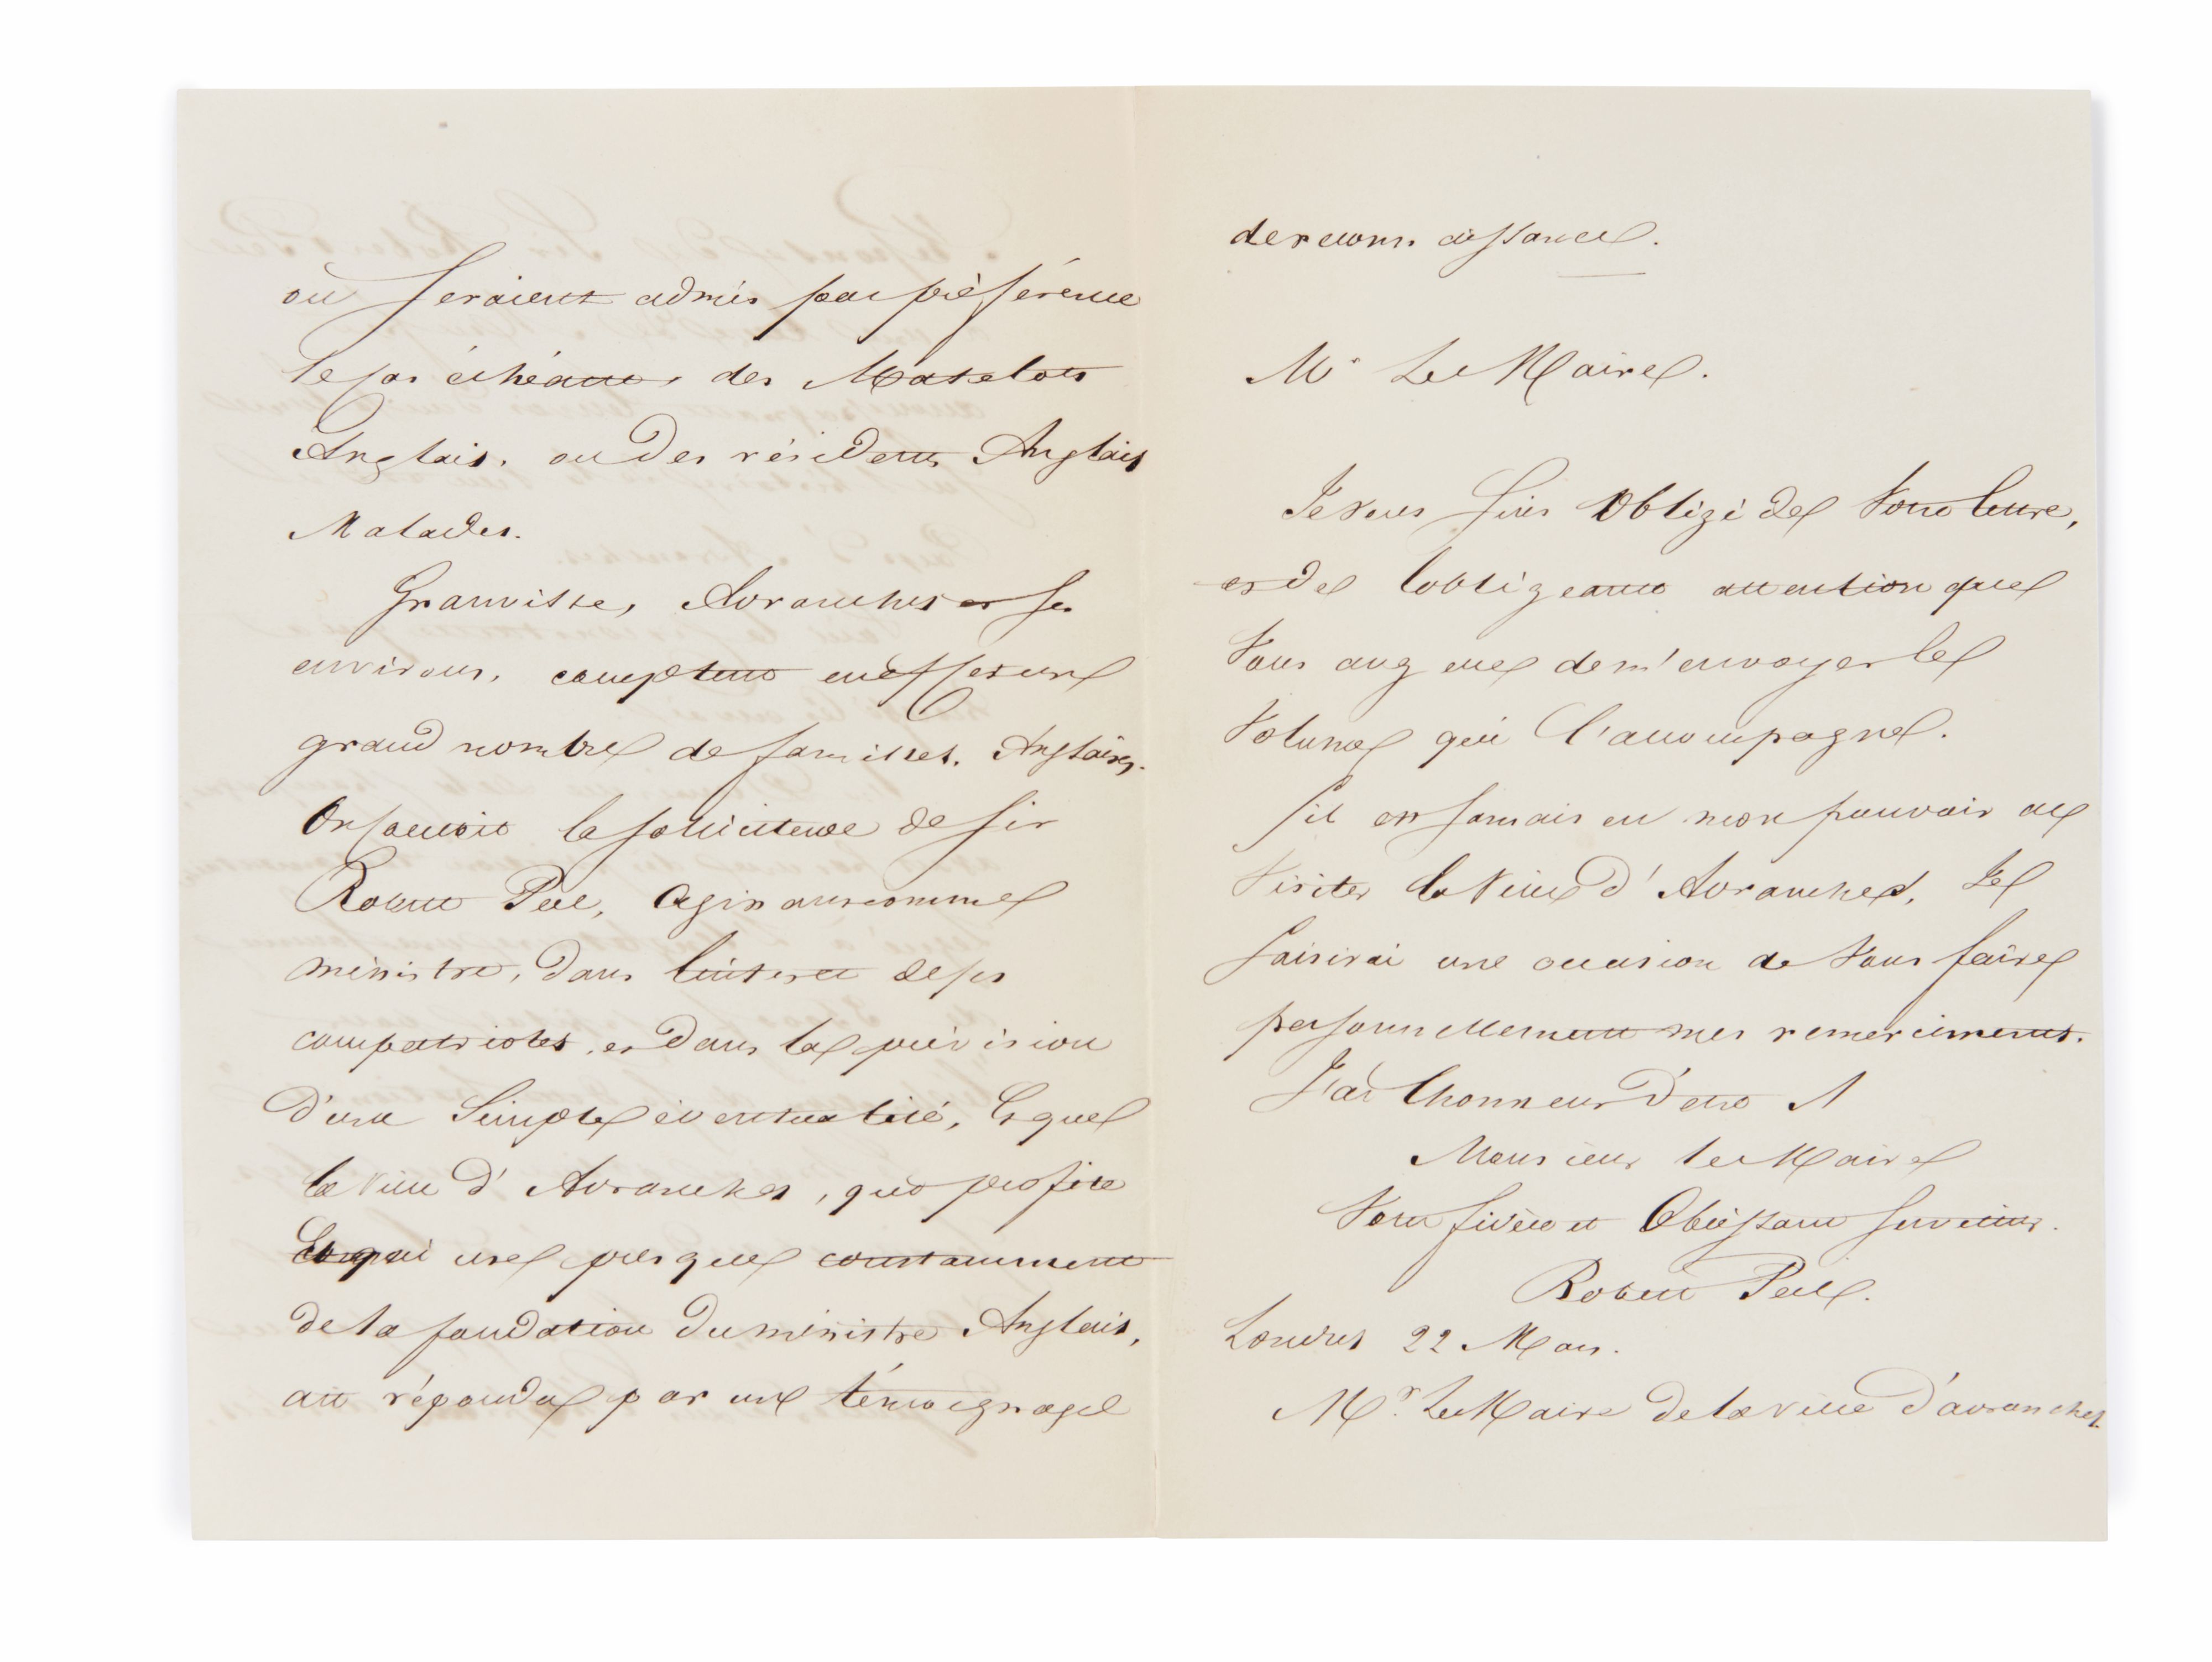 où seraient admis par préférence
le cas échéant, des Matelots
Anglais, ou des résidents Anglais
Malades.
Granville, Avranches et ses
environs, comptent en effet un
grand nombre de familles Anglaises.
On
la sollicitude de sir
Robert Peel, agissant comme
ministre, dans l'intérêt de ses
compatriotes, et dans la prévision
d'une Simple éventualité, Et que
la Ville d'Avranches, qui profite
Et qui use presque constamment
de la fondation du ministre Anglais,
ait répondu par un témoignage
de reconnaissance.
Mr Le Maire.
Je vous suis Obligé de Votre lettre,
et de l'obligeante attention que
Vous avez eue de m'envoyer le
Volume qui l'accompagne.
S'il est Jamais en mon pouvoir de
Visiter la Ville d'Avranches, Je
saisirai une occasion de Vous faire
personnellement mes remerciments.
J'ai l'honneur d'etre
Monsieur le Maire
Votre fidèle et Obéissant serviteur.
Robert Peel.
Londres 22 Mars.
Mr. Le Maire de la ville d'avranches